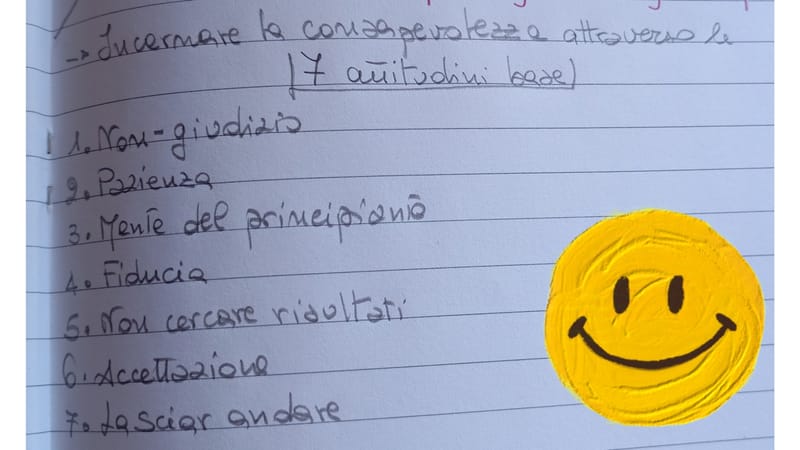 → Incarnare la consapevolezza attraverso le
(7 attitudini base)
1. Non-giudizio
2. Pazienza
3. Mente del principiante
4. Fiducia
5. Non cercare risultati
6. Accettazione
7. Lasciar andare